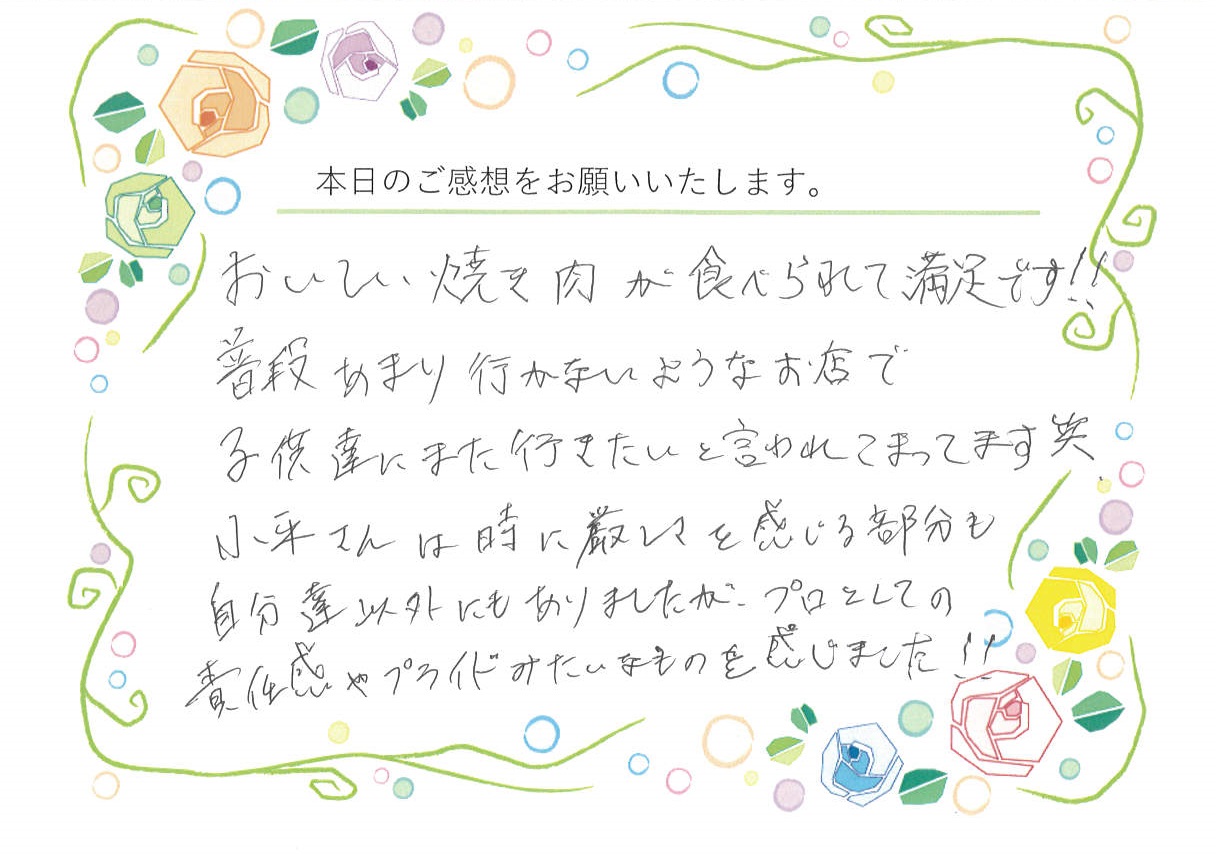 本日のご感想をお願いいたします。
おいしい焼き肉が食べられて満足です!!
普段あまり行かないようなお店で
子供達にまた行きたいと言われてまってます笑
小平さんは時に厳しさを感じる部分も
自分達以外にもありましたが、プロとしての
責任感やプライドみたいなものを感じました!!